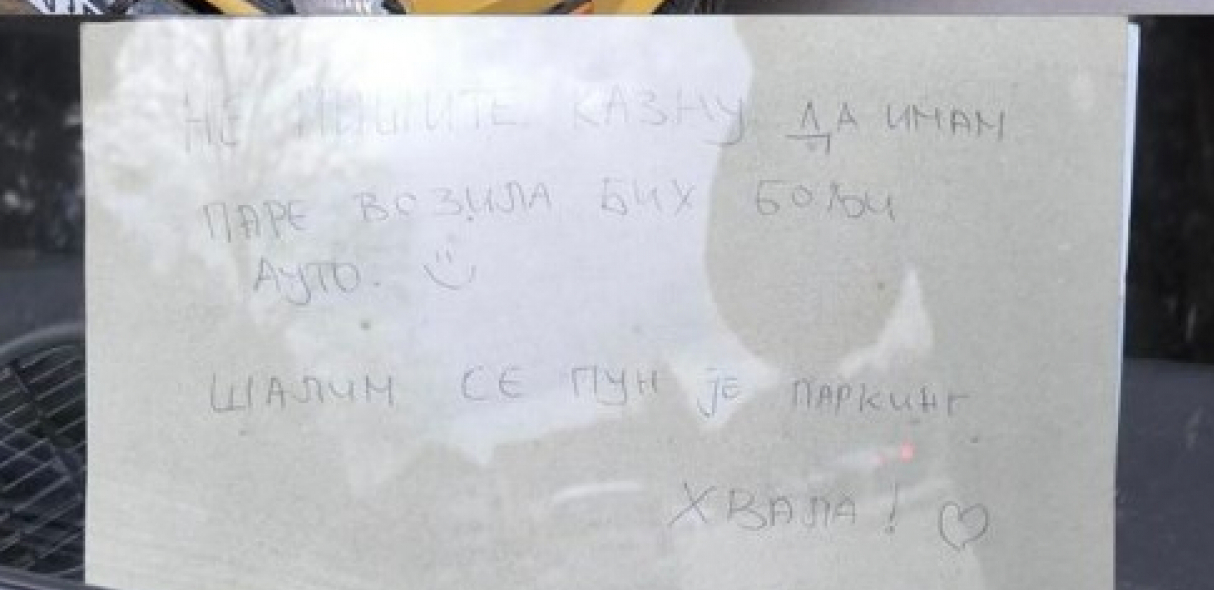 НЕ ПИШИТЕ КАЗНУ ДА ИМАМ
ПАРЕ ВОЗИЛА БИХ БОЉИ
АУТО. :)
ШАЛИМ СЕ ПУН ЈЕ ПАРКИНГ
ХВАЛА! ♡